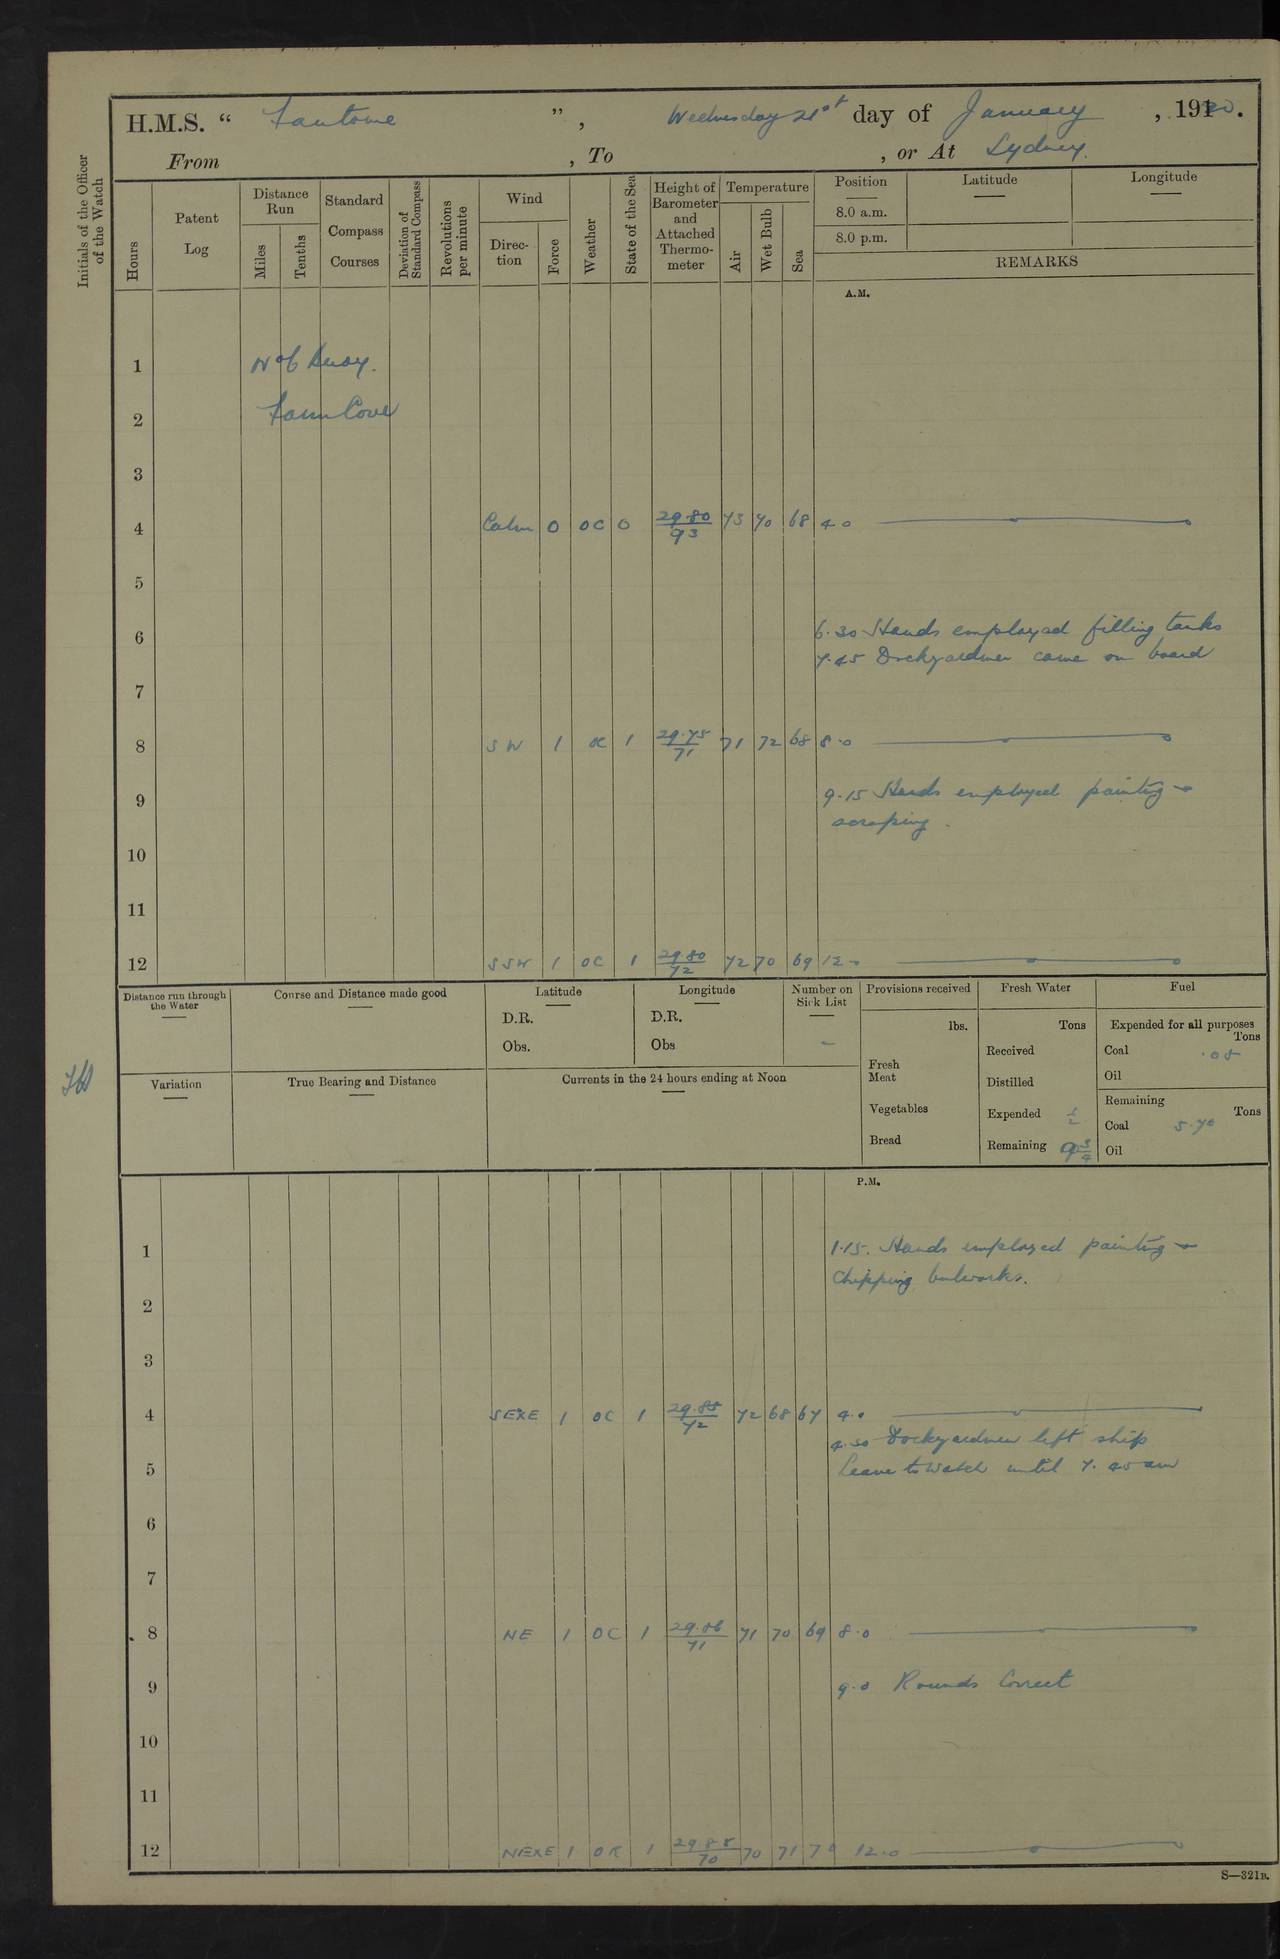 H.M.S. “ Fantome ”, Wednesday 21st day of January, 1920.
From , To , or At Sydney.
Initials of the Officer of the Watch
Hours
Patent Log
Distance Run
Miles
Tenths
Standard Compass Courses
Deviation of Standard Compass
Revolutions per minute
Wind
Direc-tion
Force
Weather
State of the Sea
Height of Barometer and Attached Thermo-meter
Temperature
Air
Wet Bulb
Sea
Position
8.0 a.m.
8.0 p.m.
Latitude
Longitude
REMARKS
A.M.
1 No 6 Buoy.
2 Farm Cove
3
4 Calm 0 OC 0 29.80 93 73 70 68 4.0
5
6 6.30 Hands employed filling tanks
7.45 Dockyardmen came on board
7
8 SW 1 OC 1 29.75 71 71 72 68 8.0
9 9.15 Hands employed painting &
scraping.
10
11
12 SSW 1 OC 1 29.80 72 72 70 69 12.0
Distance run through the Water
Course and Distance made good
Latitude
D.R.
Obs.
Longitude
D.R.
Obs
Number on Sick List
–
Provisions received
lbs.
Fresh Meat
Vegetables
Bread
Fresh Water
Tons
Received
Distilled
Expended 1/2
Remaining 9 3/4
Fuel
Expended for all purposes
Tons
Coal .05
Oil
Remaining
Tons
Coal 5.70
Oil
Variation
True Bearing and Distance
Currents in the 24 hours ending at Noon
P.M.
1 1.15. Hands employed painting &
chipping bulwarks.
2
3
4 SExE 1 OC 1 29.85 72 72 68 67 4.0
4.30 Dockyardmen left ship
5 Leave to watch until 7.45 am
6
7
8 NE 1 OC 1 29.86 71 71 70 69 8.0
9 9.0 Rounds Correct
10
11
12 NExE 1 1 29.85 70 70 71 70 12.0
S—321B.